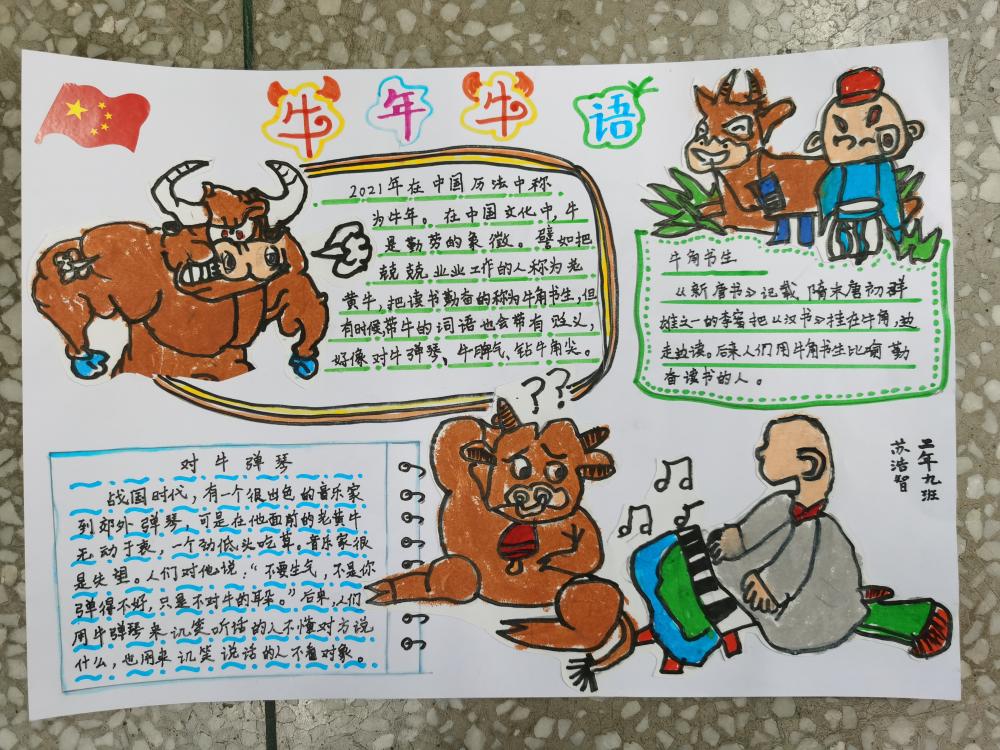 牛年牛语
2021年在中国历法中称
为牛年。在中国文化中,牛
是勤劳的象徵。譬如把
兢兢业业工作的人称为老
黄牛,把读书勤奋的称为牛角书生,但
有时候,带牛的词语也会带有贬义,
好像对牛弹琴、牛脾气、钻牛角尖。
牛角书生
《新唐书》记载 隋末唐初群
雄之一的李密把《汉书》挂在牛角,边
走边读。后来人们用牛角书生比喻 勤
奋读书的人。
??
对牛弹琴
战国时代,有一个很出色的音乐家
到郊外弹琴,可是在他面前的老黄牛
无动于衷,一个劲低头吃草。音乐家很
是失望。人们对他说:“不要生气,不是你
弹得不好,只是不对牛的耳朵。”后来,人们
用牛弹琴来讥笑听话的人不懂对方说
什么,也用来讥笑说话的人不看对象。
三年九班
苏浩智